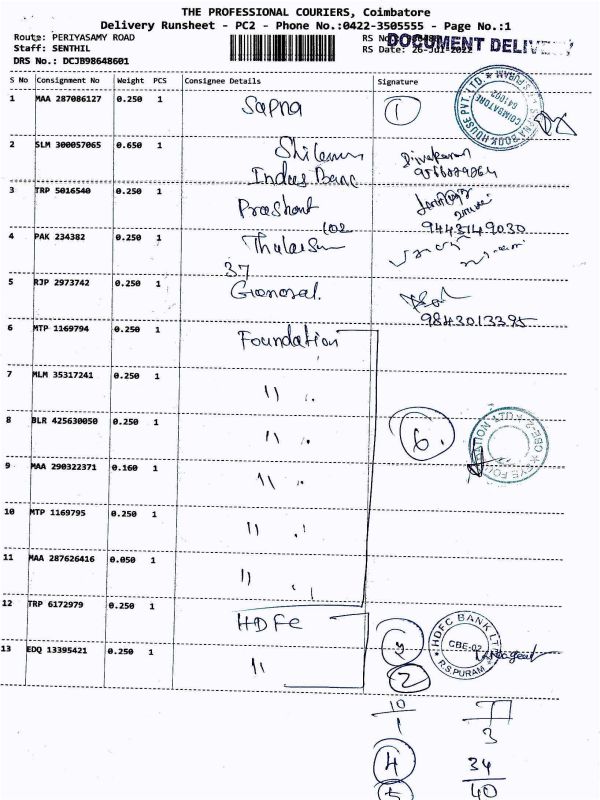 THE PROFESSIONAL COURIERS, Coimbatore
Delivery Runsheet - PC2 - Phone No.:0422-3505555 - Page No.:1
Route: PERIYASAMY ROAD
RS No
DOCUMENT DELIVERY
Staff: SENTHIL
RS Date: 26-Jul-2022
DRS No.: DCJB98648601
S No Consignment No Weight PCS Consignee Details Signature
1 MAA 287086127 0.250 1 Sapna 1
BOOK HOUSE PVT. LTD. COIMBATORE 641002 R.S.PURAM
2 SLM 300057065 0.650 1
Indus Banc
3 TRP 5016540 0.250 1 Prashant
102 9443149030
4 PAK 234382 0.250 1
37
5 RJP 2973742 0.250 1 General.
9843013395
6 MTP 1169794 0.250 1 Foundation
7 MLM 35317241 0.250 1 11
8 BLR 425630050 0.250 1 11 6.
EYE FOUNDATION LTD CBE-2
9 MAA 290322371 0.160 1 11
10 MTP 1169795 0.250 1 11
11 MAA 287626416 0.050 1 11
12 TRP 6172979 0.250 1 HDFC
HDFC BANK LTD CBE-02 R.S.PURAM
13 EDQ 13395421 0.250 1 11 2
10
1 3
4 34
5 40